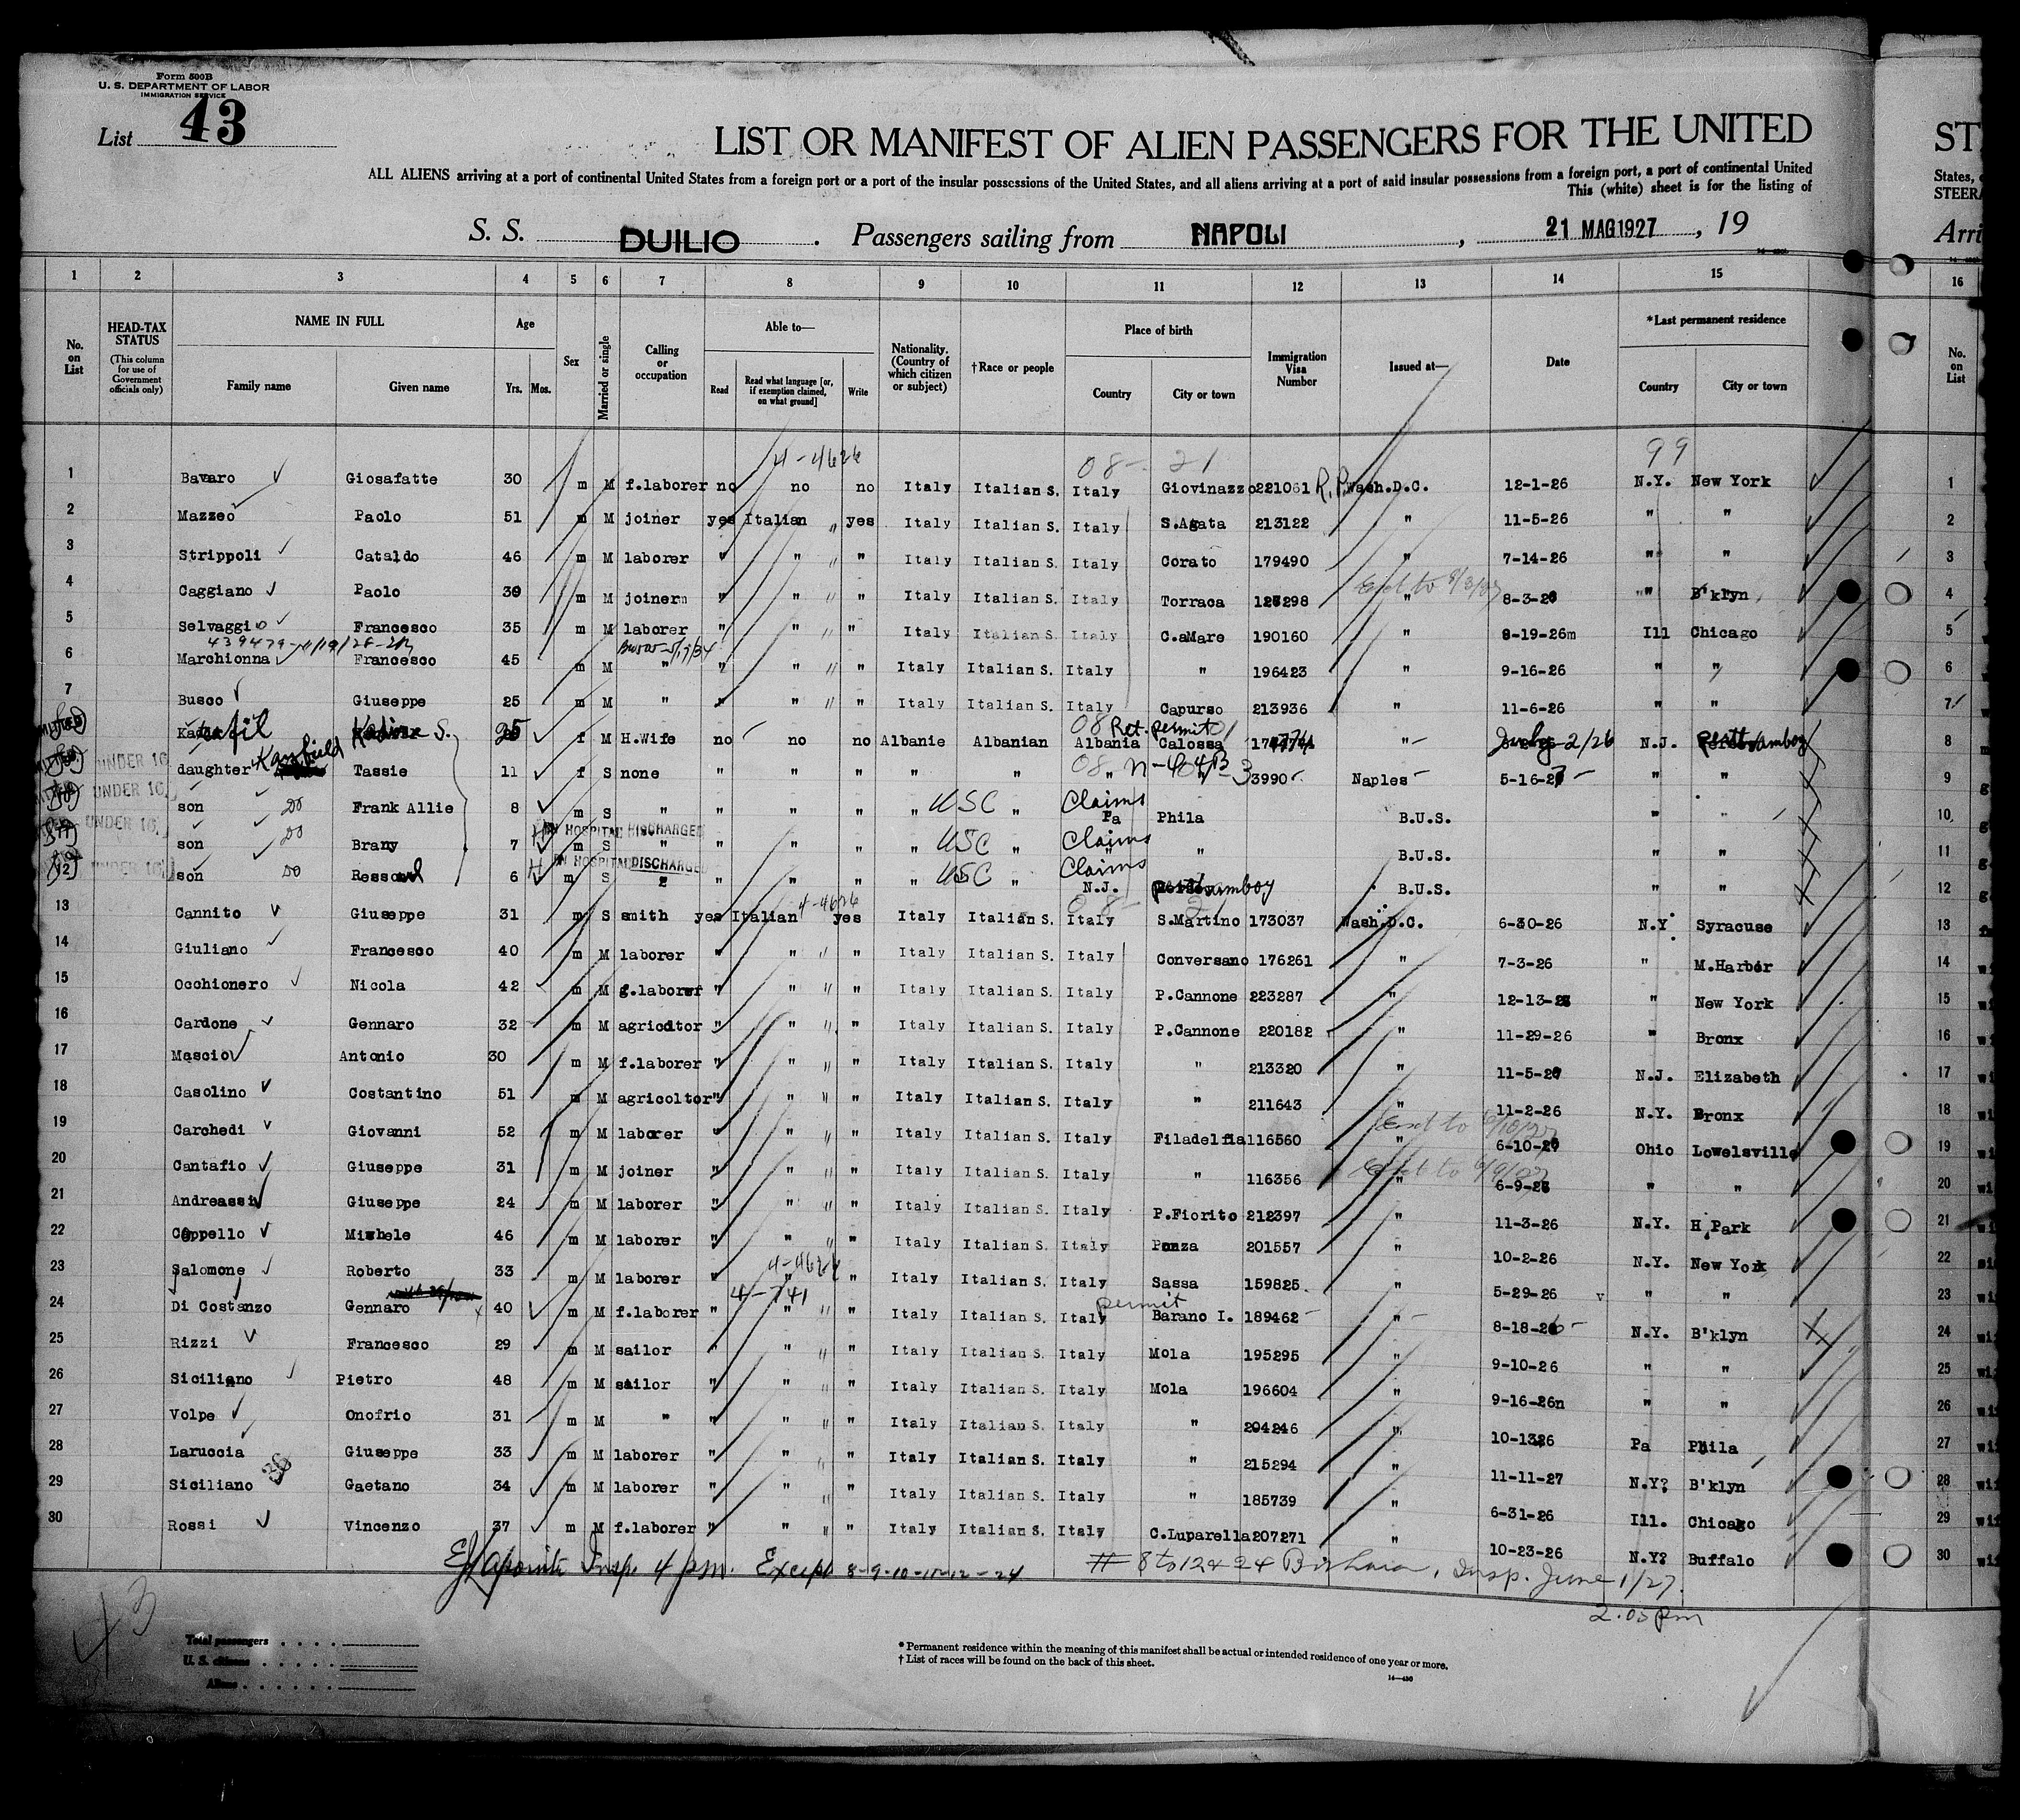 Form 500B
U. S. DEPARTMENT OF LABOR
IMMIGRATION SERVICE
List 43
LIST OR MANIFEST OF ALIEN PASSENGERS FOR THE UNITED ST
ALL ALIENS arriving at a port of continental United States from a foreign port or a port of the insular possessions of the United States, and all aliens arriving at a port of said insular possessions from a foreign port, a port of continental United States,
This (white) sheet is for the listing of STEER
S. S. DUILIO . Passengers sailing from NAPOLI , 21 MAG 1927 , 19 Arri
1 2 3 4 5 6 7 8 9 10 11 12 13 14 15 16
No. on List HEAD-TAX STATUS (This column for use of Government officials only) NAME IN FULL Family name Given name Age Yrs. Mos. Sex Married or single Calling or occupation Able to— Read Read what language [or, if exemption claimed, on what ground] Write Nationality. (Country of which citizen or subject) †Race or people Place of birth Country City or town Immigration Visa Number Issued at— Date *Last permanent residence Country City or town No. on List
4-4626 08- 21 99
1 Bavaro Giosafatte 30 m M f.laborer no no no Italy Italian S. Italy Giovinazzo 221061 R.P. Wash.D.C. 12-1-26 N.Y. New York 1
2 Mazzeo Paolo 51 m M joiner yes Italian yes Italy Italian S. Italy S.Agata 213122 " 11-5-26 " " 2
3 Strippoli Cataldo 46 m M laborer " " " Italy Italian S. Italy Corato 179490 " 7-14-26 " " 3
Ext to 8/3/27
4 Caggiano Paolo 39 m M joiner " " " Italy Italian S. Italy Torraca 128298 " 8-3-26 " B'klyn 4
5 Selvaggio Francesco 35 m M laborer " " " Italy Italian S. Italy C.aMare 190160 " 8-19-26 Ill Chicago 5
6 Marchionna Francesco 45 m M " " " " Italy Italian S. Italy " 196423 " 9-16-26 " " 6
7 Busco Giuseppe 25 m M " " " " Italy Italian S. Italy Capurso 213936 " 11-6-26 " " 7
08 Ret. permit 01
8 S. 25 f M H.Wife no no no Albanie Albanian Albania Calossa " July 2/26 N.J. Perth amboy 8
UNDER 16
9 daughter Tassie 11 f S none " " " " " " 3990 Naples 5-16-27 " " 9
UNDER 16
10 son do Frank Allie 8 m S " " " " " USC " Claims Pa Phila B.U.S. " " 10
UNDER 16 IN HOSPITAL DISCHARGED
11 son do Brany 7 m S " " " " " USC " Claims " " B.U.S. " " 11
UNDER 16 IN HOSPITAL DISCHARGED
12 son do 6 m S " " " " " USC " Claims N.J. Perth amboy B.U.S. " " 12
4-4626
13 Cannito Giuseppe 31 m S smith yes Italian yes Italy Italian S. Italy S.Martino 173037 Wash.D.C. 6-30-26 N.Y. Syracuse 13
14 Giuliano Francesco 40 m M laborer " " " Italy Italian S. Italy Conversano 176261 " 7-3-26 " M.Harbor 14
15 Occhionero Nicola 42 m M g.laborer " " " Italy Italian S. Italy P.Cannone 223287 " 12-13-26 " New York 15
16 Cardone Gennaro 32 m M agricoltor " " " Italy Italian S. Italy P.Cannone 220182 " 11-29-26 " Bronx 16
17 Mascio Antonio 30 m M f.laborer " " " Italy Italian S. Italy " 213320 " 11-5-26 N.J. Elizabeth 17
18 Casolino Costantino 51 m M agricoltor " " " Italy Italian S. Italy " 211643 " 11-2-26 N.Y. Bronx 18
Ext to 6/10/27
19 Carchedi Giovanni 52 m M laborer " " " Italy Italian S. Italy Filadelfia 116560 " 6-10-26 Ohio Lowelsville 19
Ext to 6/9/27
20 Cantafio Giuseppe 31 m M joiner " " " Italy Italian S. Italy " 116356 " 6-9-26 " " 20
21 Andreassi Giuseppe 24 m M laborer " " " Italy Italian S. Italy P.Fiorito 212397 " 11-3-26 N.Y. H.Park 21
22 Coppello Michele 46 m M laborer " " " Italy Italian S. Italy Ponza 201557 " 10-2-26 N.Y. New York 22
4-4626
23 Salomone Roberto 33 m M laborer " " " Italy Italian S. Italy Sassa 159825 " 5-29-26 " " 23
4-741 permit
24 Di Costanzo Gennaro 40 m M f.laborer " " " Italy Italian S. Italy Barano I. 189462 " 8-18-26 N.Y. B'klyn 24
25 Rizzi Francesco 29 m M sailor " " " Italy Italian S. Italy Mola 195295 " 9-10-26 " " 25
26 Siciliano Pietro 48 m M sailor " " " Italy Italian S. Italy Mola 196604 " 9-16-26n " " 26
27 Volpe Onofrio 31 m M " " " " Italy Italian S. Italy " 204246 " 10-1326 Pa Phila 27
28 Laruccia Giuseppe 33 m M laborer " " " Italy Italian S. Italy " 215294 " 11-11-27 N.Y? B'klyn 28
29 Siciliano Gaetano 34 m M laborer " " " Italy Italian S. Italy " 185739 " 6-31-26 Ill. Chicago 29
30 Rossi Vincenzo 37 m M f.laborer " " " Italy Italian S. Italy C.Luparella 207271 " 10-23-26 N.Y? Buffalo 30
Insp. 4 pm. Except 8-9-10-11-12-24 # 8 to 12 & 24 Insp. June 1/27.
2.05 pm
43
Total passengers
U. S. citizens
Aliens
* Permanent residence within the meaning of this manifest shall be actual or intended residence of one year or more.
† List of races will be found on the back of this sheet.
14—430